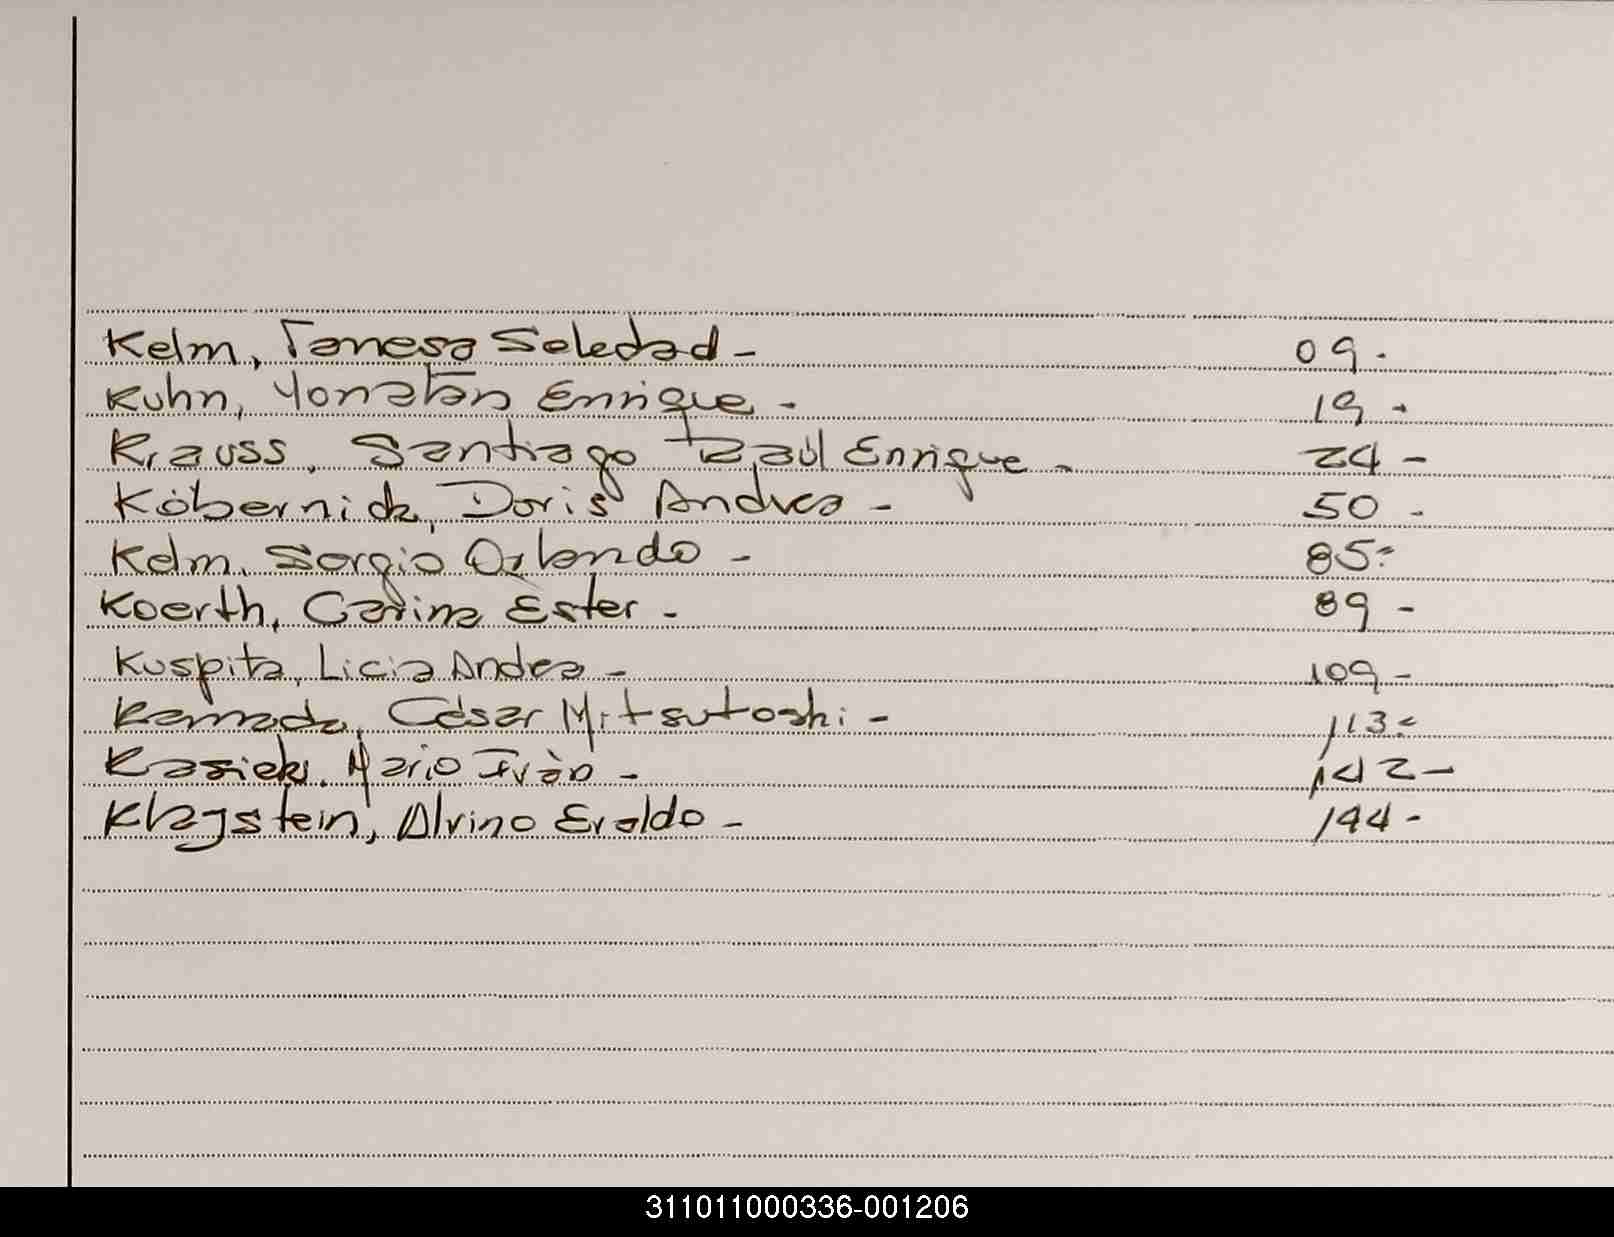 Kelm, Tanesa Soledad - 09.
Kuhn, Yonatan Enrique - 19 -
Krauss, Santiago Raúl Enrique - 24 -
Köbernick, Doris Andrea - 50 -
Kelm, Sergio Orlando - 85.-
Koerth, Carina Ester - 89 -
Kuspita, Licia Andrea - 109 -
Kamada, César Mitsutoshi - 113.-
Kasiek, Mario Iván - 142 -
Klagstein, Alvino Eraldo - 144 -
311011000336-001206